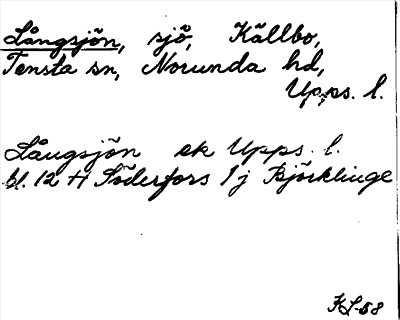 Långsjön, sjö, Källbo,
Tensta sn, Norunda hd,
Upps. l.
Långsjön ek Upps. l.
bl. 12 H Söderfors 1 j Björklinge
KL-58